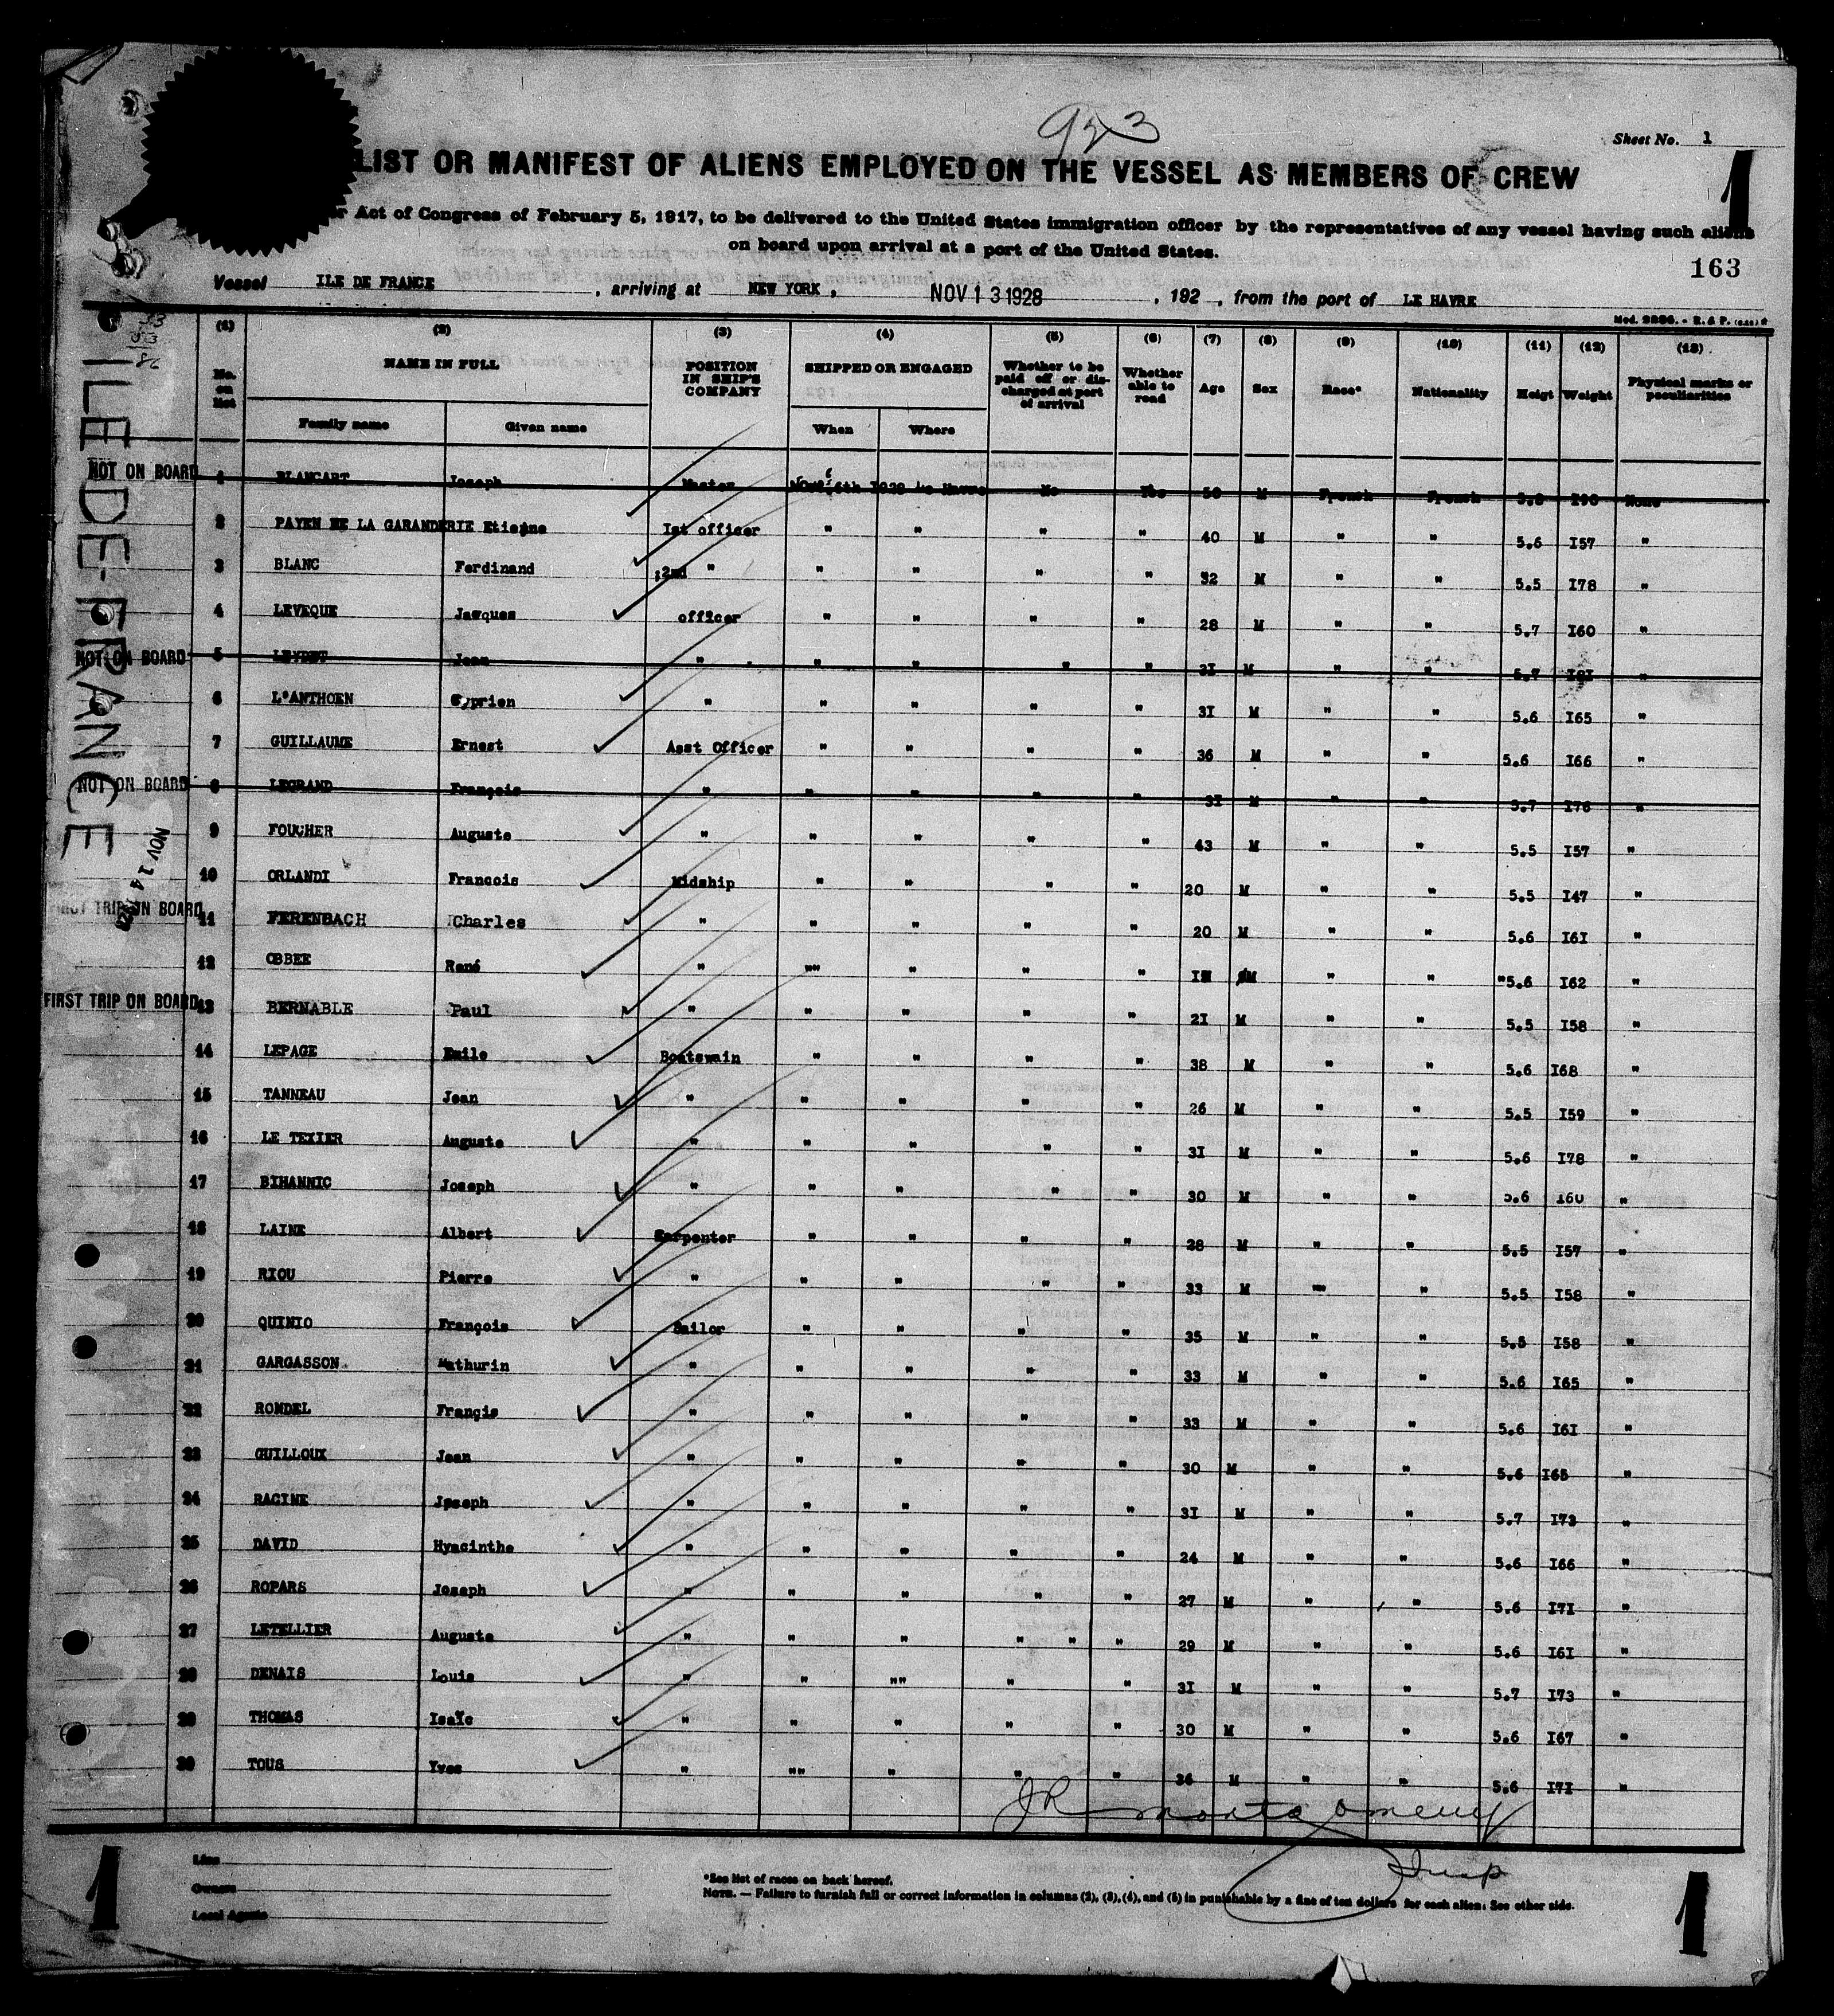 923
Sheet No. 1
LIST OR MANIFEST OF ALIENS EMPLOYED ON THE VESSEL AS MEMBERS OF CREW
1
Act of Congress of February 5, 1917, to be delivered to the United States immigration officer by the representatives of any vessel having such aliens
on board upon arrival at a port of the United States.
163
Vessel ILE DE FRANCE, arriving at NEW YORK, NOV 13 1928, 192 , from the port of LE HAVRE
ILE DE-FRANCE
NOV 14
(1) (2) (3) (4) (5) (6) (7) (8) (9) (10) (11) (12) (13)
No. on list NAME IN FULL POSITION IN SHIP'S COMPANY SHIPPED OR ENGAGED Whether to be paid off or discharged at port of arrival Whether able to read Age Sex Race* Nationality Heigt Weight Physical marks or peculiarities
Family name Given name When Where
NOT ON BOARD 1 BLANCART Joseph Master Nov. 6th 1928 Le Havre No Yes 50 M French French 5.8 190 None
2 PAYEN DE LA GARANDERIE Etienne Ist officer " " " " 40 M " " 5.6 I57 "
3 BLANC Ferdinand 2nd " " " " " 32 M " " 5.5 I78 "
4 LEVEQUE Jacques officer " " " " 28 M " " 5.7 I60 "
NOT ON BOARD 5 LEYDET Jean " " " " " 3I M " " 5.7 I8I "
6 L'ANTHOEN Cyprien " " " " " 3I M " " 5.6 I65 "
7 GUILLAUME Ernest Asst Officer " " " " 36 M " " 5.6 I66 "
NOT ON BOARD 8 LEGRAND François " " " " " 3I M " " 5.7 I76 "
9 FOUCHER Auguste " " " " " 43 M " " 5.5 I57 "
10 ORLANDI Francois Midship " " " " 20 M " " 5.5 I47 "
FIRST TRIP ON BOARD 11 FERENBACH Charles " " " " " 20 M " " 5.6 I6I "
12 OBBEE René " "" " " " M " " "5.6 I62 "
FIRST TRIP ON BOARD 13 BERNABLE Paul " " " " " 2I M " " 5.5 I58 "
14 LEPAGE Emile Boatswain " " " " 38 M " " 5.6 I68 "
15 TANNEAU Jean " " " " " 26 M " " 5.5 I59 "
16 LE TEXIER Auguste " " " " " 3I M " " 5.6 I78 "
17 BIHANNIC Joseph " " " " " 30 M " " 5.6 I60 "
18 LAINE Albert Carpenter " " " " 28 M " " 5.5 I57 "
19 RIOU Pierre " " " " " 33 M " " 5.5 I58 "
20 QUINIO François Sailor " " " " 35 M " " 5.5 I58 "
21 GARGASSON Mathurin " " " " " 33 M " " 5.6 I65 "
22 RONDEL Françis " " " " " 33 M " " 5.6 I6I "
23 GUILLOUX Jean " " " " " 30 M " " 5.6 I65 "
24 RACINE Joseph " " " " " 3I M " " 5.7 I73 "
25 DAVID Hyacinthe " " " " " 24 M " " 5.6 I66 "
26 ROPARS Joseph " " " " " 27 M " " 5.6 I7I "
27 LETELLIER Auguste " " " " " " 29 M " " 5.6 I6I "
28 DENAIS Louis " " "" " " 3I M " " 5.7 I73 "
29 THOMAS Isaïc " " " " " 30 M " " 5.6 I67 "
30 TOUS Yves " "" " " " 36 M " " 5.6 I7I "
JR Montgomery
Insp
Line
Owners
Local Agents
*See list of races on back hereof.
NOTE. — Failure to furnish full or correct information in columns (2), (3), (4), and (5) in punishable by a fine of ten dollars for each alien. See other side.
1
1